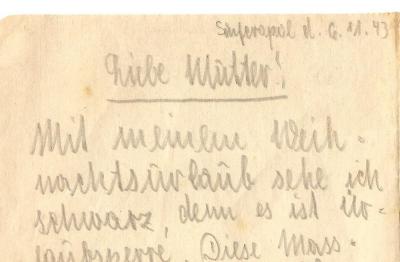 Simferopol d. 6. 11. 43
Liebe Mutter!
Mit meinem Weih-
nachtsurlaub sehe ich
schwarz, denn es ist Ur-
laubsperre. Diese Mass-